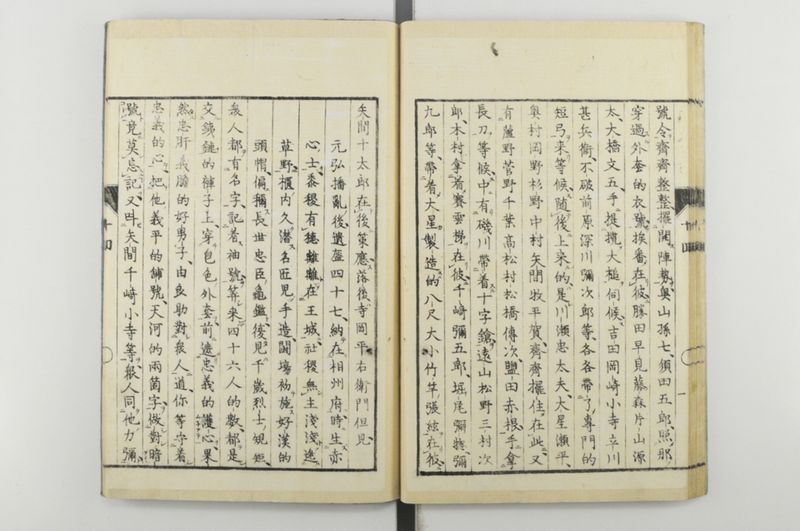 號令齊齊整整擺開陣勢奧山孫七須田五郎照那
穿過外套的衣號挨番在彼勝田早見藤森片山源
太大橋文五手提攬大槌伺候吉田岡崎小寺立川
甚兵衛不破前原深川彌次郎等各各帶了專門的
短弓來等候隨後上來的是川瀨忠太夫大星瀨平
奧村岡野杉野中村矢間牧平賀齊齊擺住在此又
有蘆野菅野千葉高松村松橋傳次鹽田赤根手拿
長刀等候中有磯川帶着十字鎗遠山松野三村次
郎木村拿着雲梯在彼千崎彌五郎堀尾彌惣彌
九郎等帶着大星製造的八尺大小竹竿張絃在彼
矢間十太郎在後策應落後寺岡平右衛門但見
元弘播亂後遺盔四十七納在相州府時生赤
心士黍稷有穗離離在王城社稷無主淺淺進
草野櫃内久潛名匠見手造鬪場初施好漢的
頭帽偏獨長世忠臣龜鑑後見千歲烈士規矩
衆人都有名字記着袖號等來四十六人的數都是
交鎖鏈的褲子上穿皀色外套前遮忠義的護心果
然忠肝義膽的好男子由良助對衆人道你等守着
忠義的心把他義平的舖號天河的兩箇字做對暗
號竟莫忘記又叫矢間千崎小寺等衆人同他力彌
十四